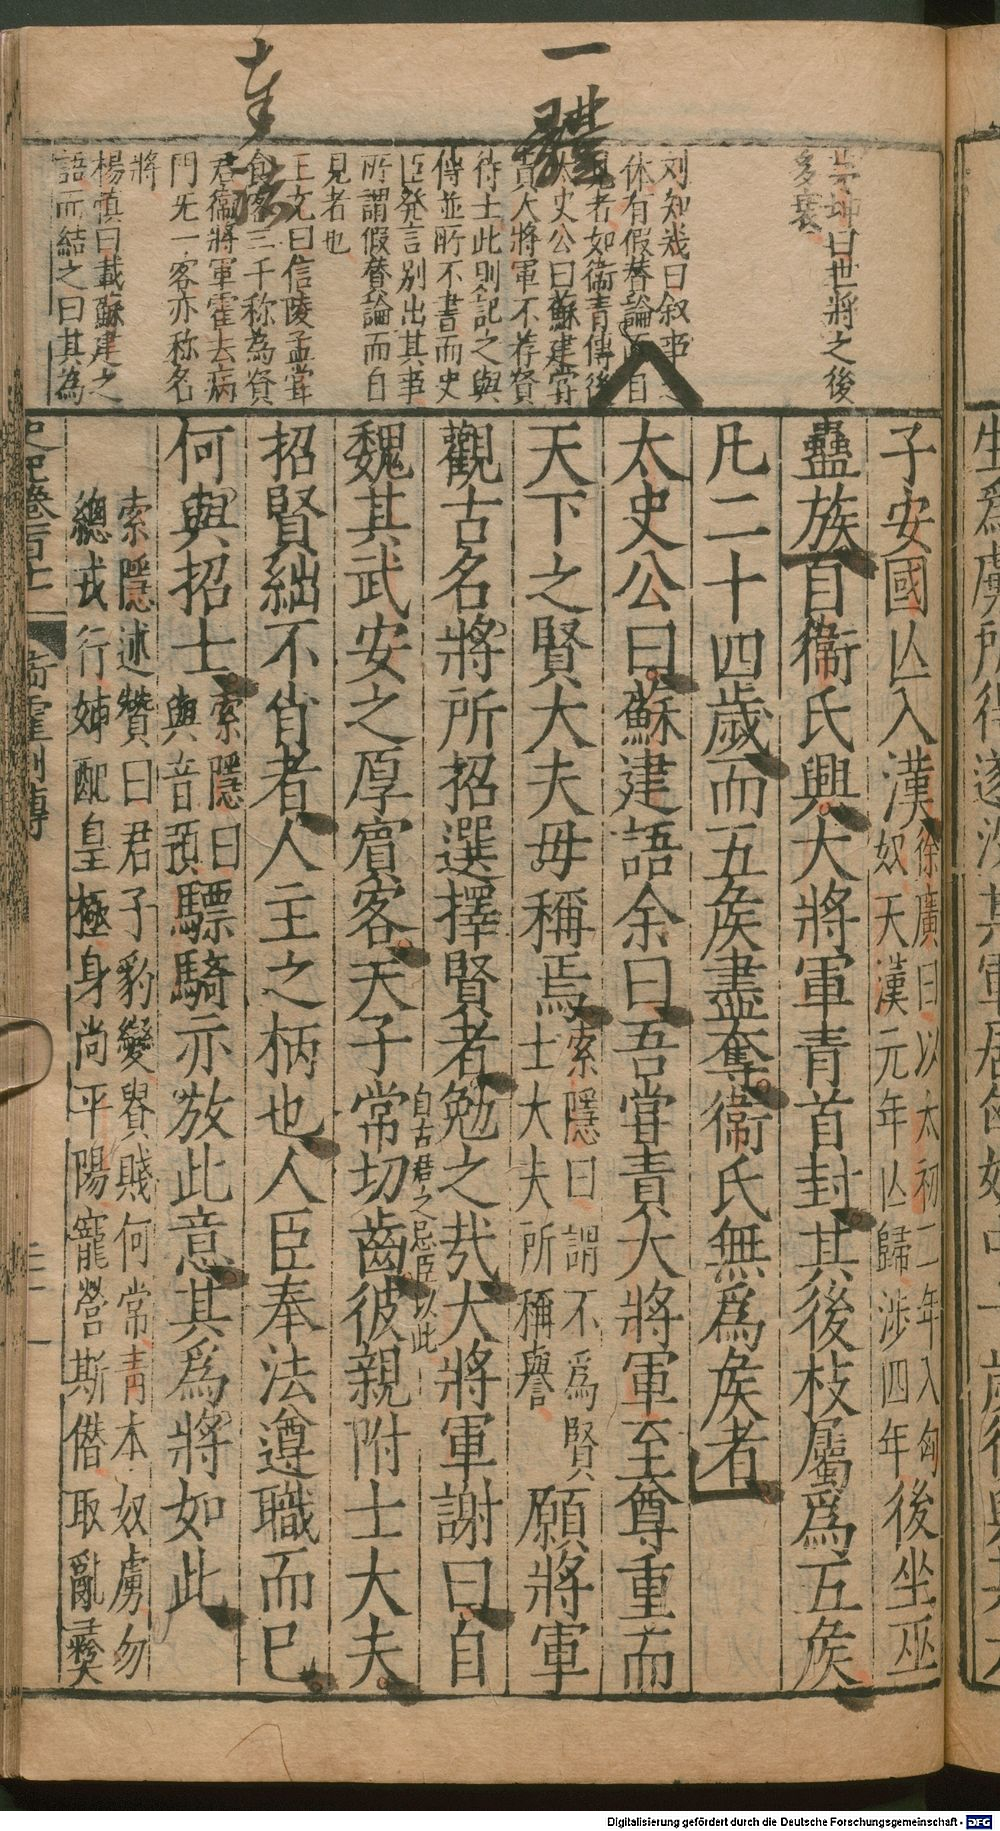 一
茅坤曰世將之後
多衰
刘知幾曰叙事之
休有假賛論而自
見者如衞青傳後
太史公曰蘇建甞
責大將軍不荐賢
待士此則記之與
傳並所不書而史
臣発言别出其事
所謂假賛論而自
見者也
王允曰信陵孟甞
食客三千称為賢
君衞將軍霍去病
門无一客亦称名
將
楊慎曰載蘇建之
語而結之曰其為
子安國亾入漢徐廣曰以太初二年入匈奴天漢元年亾歸涉四年後坐巫
蠱族自衞氏興大將軍青首封其後枝屬爲五矦
凡二十四歲而五矦盡奪衞氏無爲矦者
太史公曰蘇建語余曰吾甞責大將軍至尊重而
天下之賢大夫毋稱焉索隱曰謂不爲賢士大夫所稱譽願將軍
觀古名將所招選擇賢者勉之哉大將軍謝曰自
自古君之忌臣以此
魏其武安之厚賓客天子常切齒彼親附士大夫
招賢絀不肖者人主之柄也人臣奉法遵職而巳
何與招士索隱曰與音預驃騎亦放此意其爲將如此
索隱述贊曰君子豹變貴賤何常青本奴虜勿
總戎行姊配皇極身尚平陽寵營斯僣取亂彝
史記卷一百十一
衞霍列傳
Digitalisierung gefördert durch die Deutsche Forschungsgemeinschaft - DFG